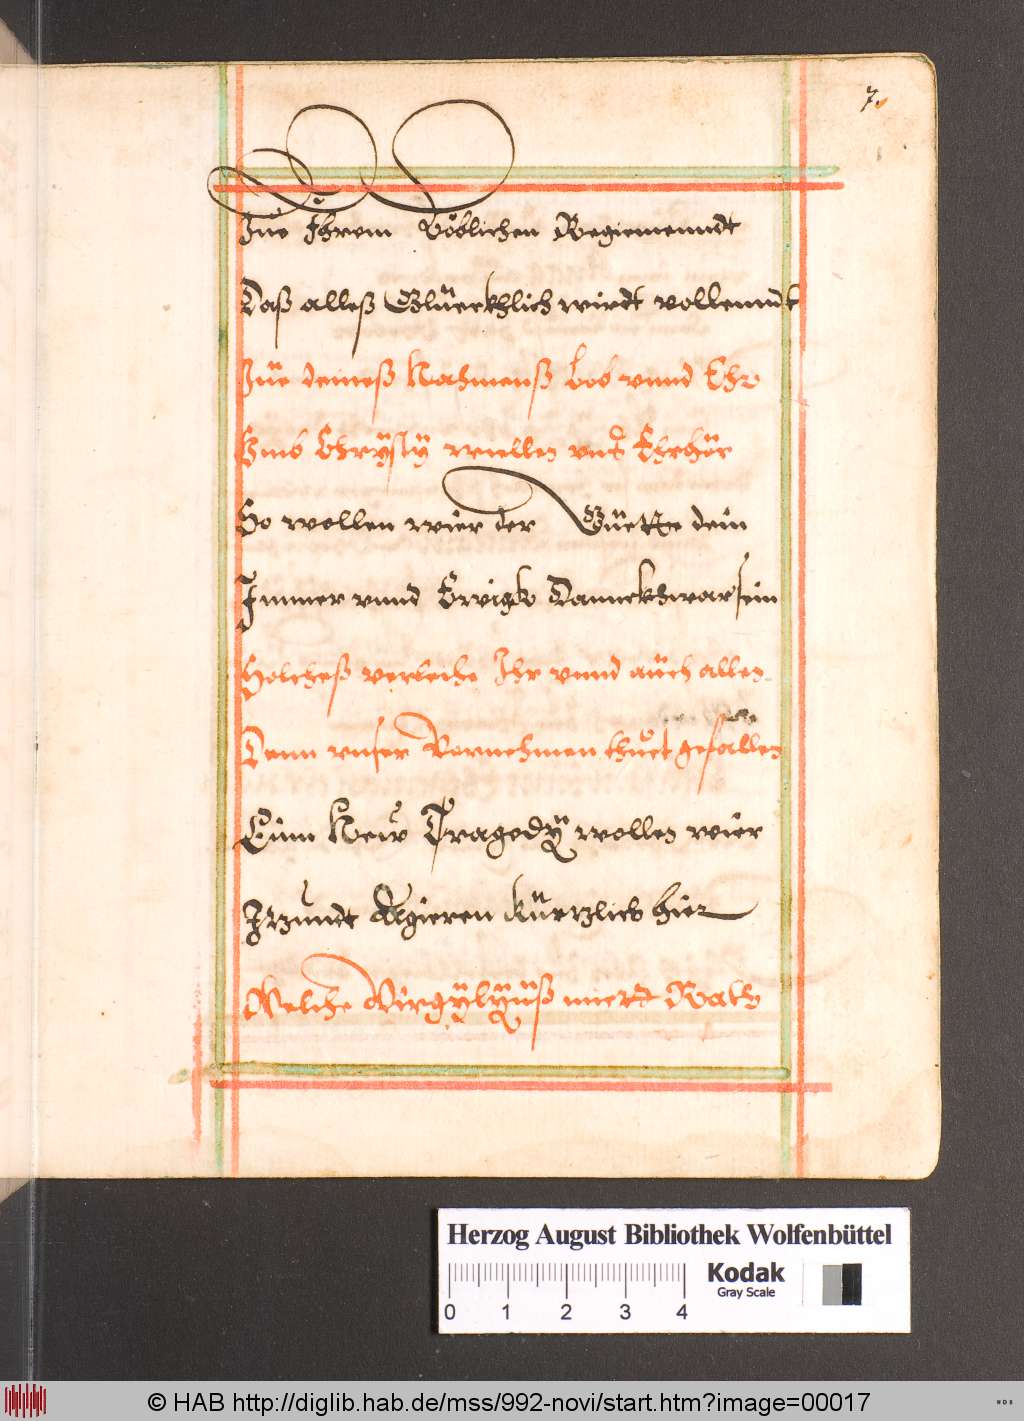 7.
Zue Ihrem Löblichen Regiemenndt
Daß alleß Glückhlich wirdt vollenndt
Züe deineß Nahmenß Lob vnnd Ehr
Chrystÿ willen vnß Erhör
So wollen wier der Güette dein
Immer vnnd Ewigk Dannckhwar sein
Solcheß verleihe Ihr vnnd auch allen
Denn vnser Vornehmen thuet gefallen
Einn New Tragedÿ wollen wier
Itzundt Agieren kürtzlich hier
Welche Virgÿlÿuß
Herzog August Bibliothek Wolfenbüttel
Kodak
Gray Scale
0 1 2 3 4
© HAB http://diglib.hab.de/mss/992-novi/start.htm?image=00017